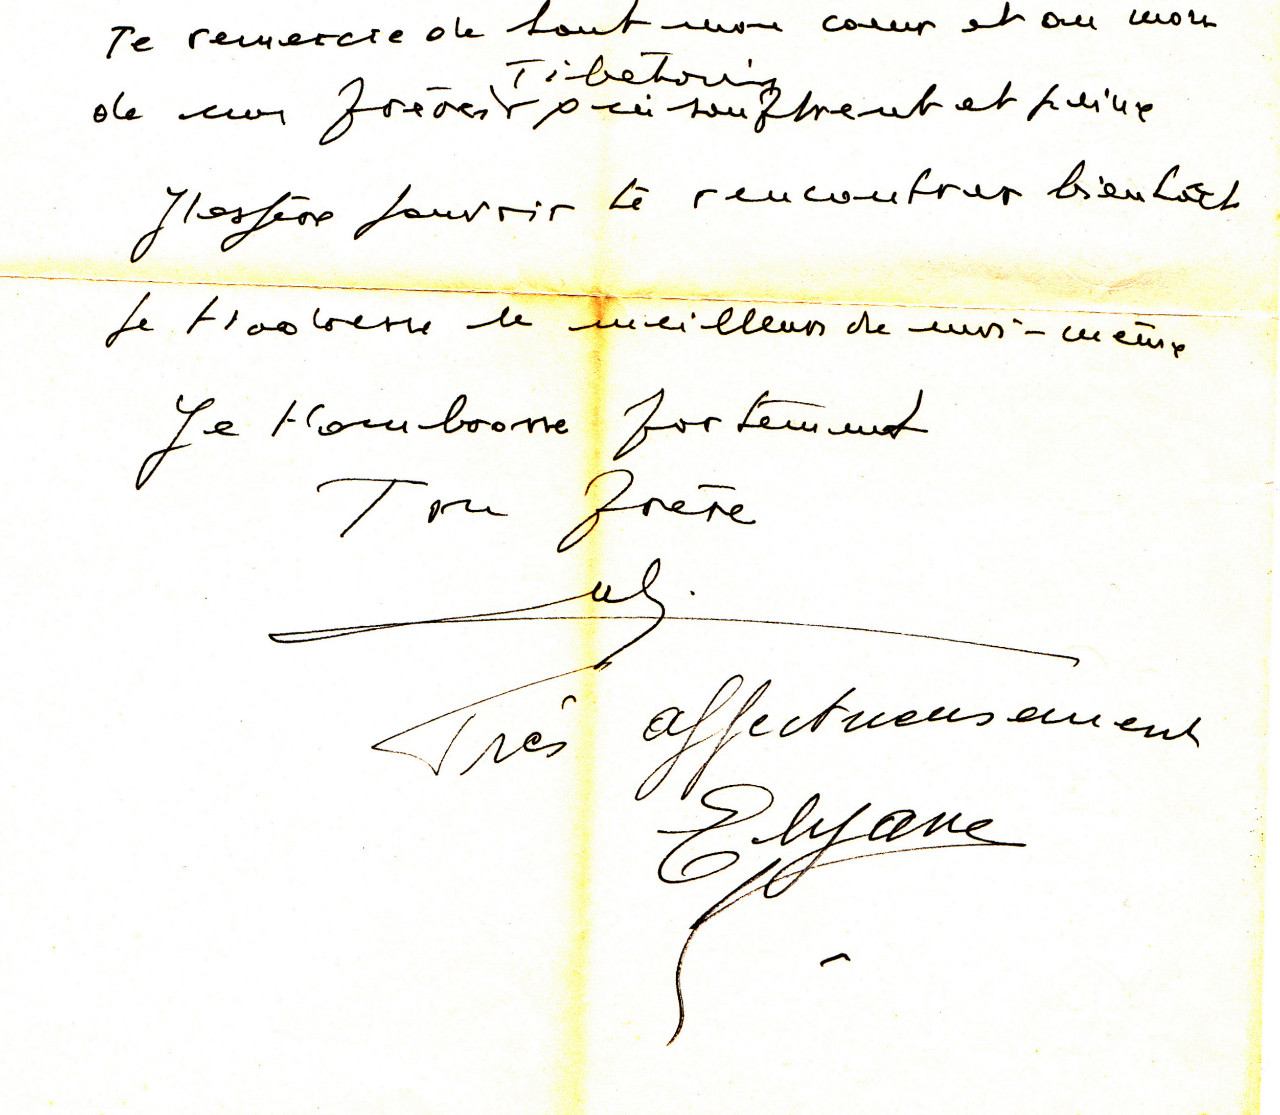 Te remercie de tout mon cœur et au nom
Tibétains
de mes frères qui souffrent et peine
J'espère pouvoir te rencontrer bientôt
Je t'adresse le meilleur de moi-même
Je t'embrasse fortement
Ton frère
Très affectueusement
Elyane